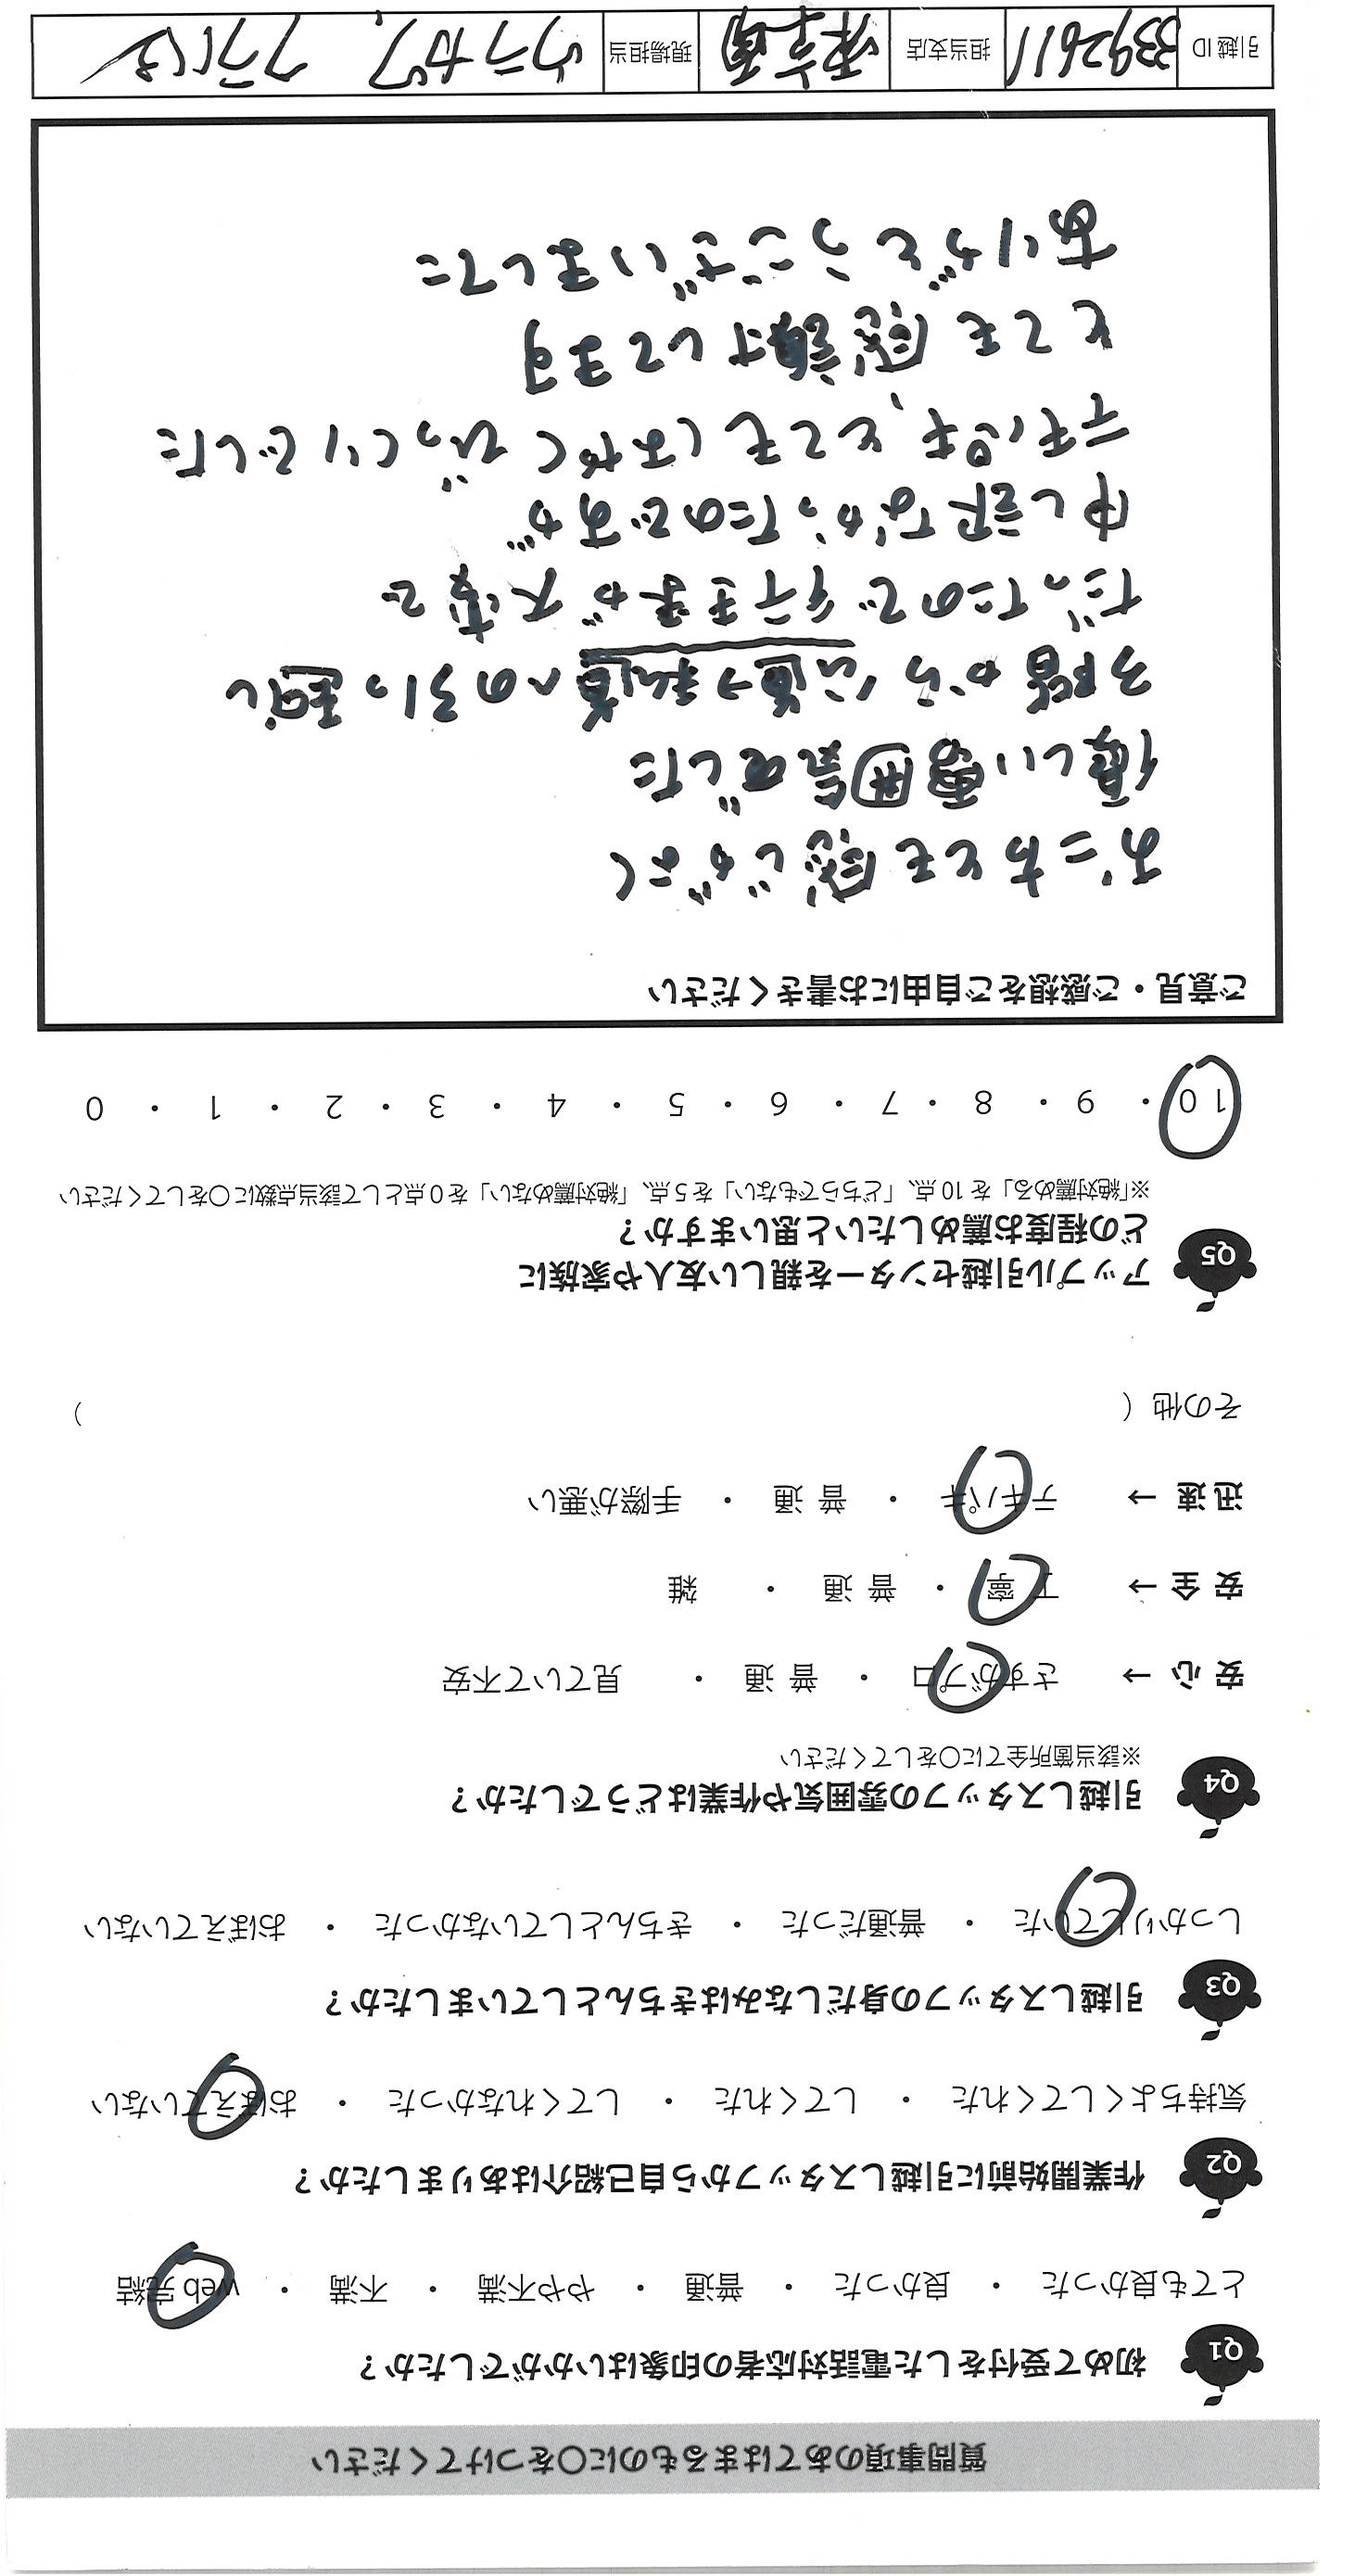 質問事項のあてはまるものに〇をつけてください
Q1 初めて受付をした電話対応者の印象はいかがでしたか？
とても良かった ・ 良かった ・ 普通 ・ やや不満 ・ 不満 ・ web 完結
Q2 作業開始前に引越しスタッフから自己紹介はありましたか？
気持ちよくしてくれた ・ してくれた ・ してくれなかった ・ おぼえていない
Q3 引越しスタッフの身だしなみはきちんとしていましたか？
しっかりしていた ・ 普通だった ・ きちんとしていなかった ・ おぼえていない
Q4 引越しスタッフの雰囲気や作業はどうでしたか？
※該当箇所全てに〇をしてください
安 心 → さすがプロ ・ 普 通 ・ 見ていて不安
安 全 → 丁 寧 ・ 普 通 ・ 雑
迅 速 → テキパキ ・ 普 通 ・ 手際が悪い
その他（ ）
Q5 アップル引越センターを親しい友人や家族に
どの程度お薦めしたいと思いますか？
※「絶対薦める」を 10 点、「どちらでもない」を 5 点、「絶対薦めない」を 0 点として該当点数に〇をしてください
10 ・ 9 ・ 8 ・ 7 ・ 6 ・ 5 ・ 4 ・ 3 ・ 2 ・ 1 ・ 0
ご意見・ご感想をご自由にお書きください
お二方とも感じがよく
優しい雰囲気でした
3階から 公道→私道への引っ越し
だったので 行き来が大変で
申し訳なかったのですが
テキパキ、とてもはやく びっくりでした
とても感謝してます
ありがとうございました
引越 ID 3392611 担当支店 現場担当